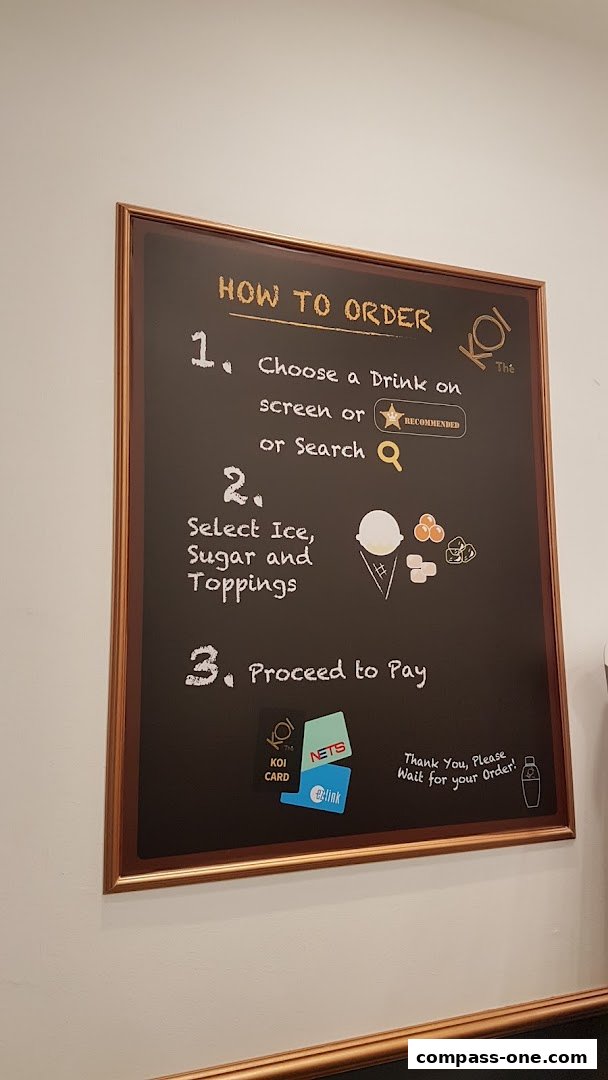 HOW TO ORDER
KOI
Thé
1. Choose a Drink on
screen or RECOMMENDED
or Search
2.
Select Ice,
Sugar and
Toppings
3. Proceed to Pay
KOI
Thé
KOI
CARD
NETS
ezlink
Thank You, Please
Wait for your Order!
compass-one.com